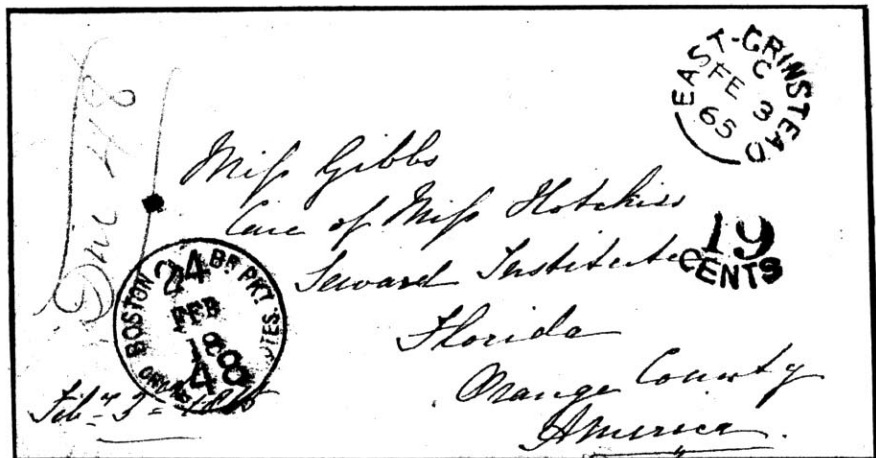 EAST-GRINSTEAD
C
FE 3
65
Due 48
Miss Gibbs
Care of Miss Hotchkiss
Seward Institute
Florida
Orange County
America.
19
CENTS
BOSTON BR. PKT.
24
FEB
18
48
Feb. 3 = 1865